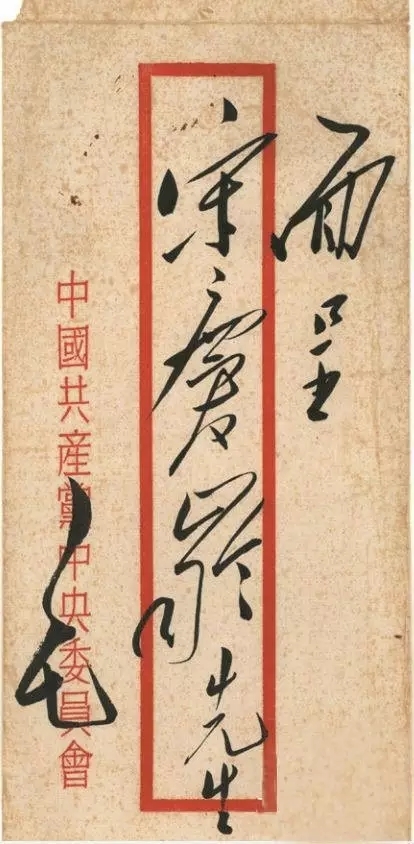 面呈
宋庆龄先生
中國共産黨中央委員會
毛